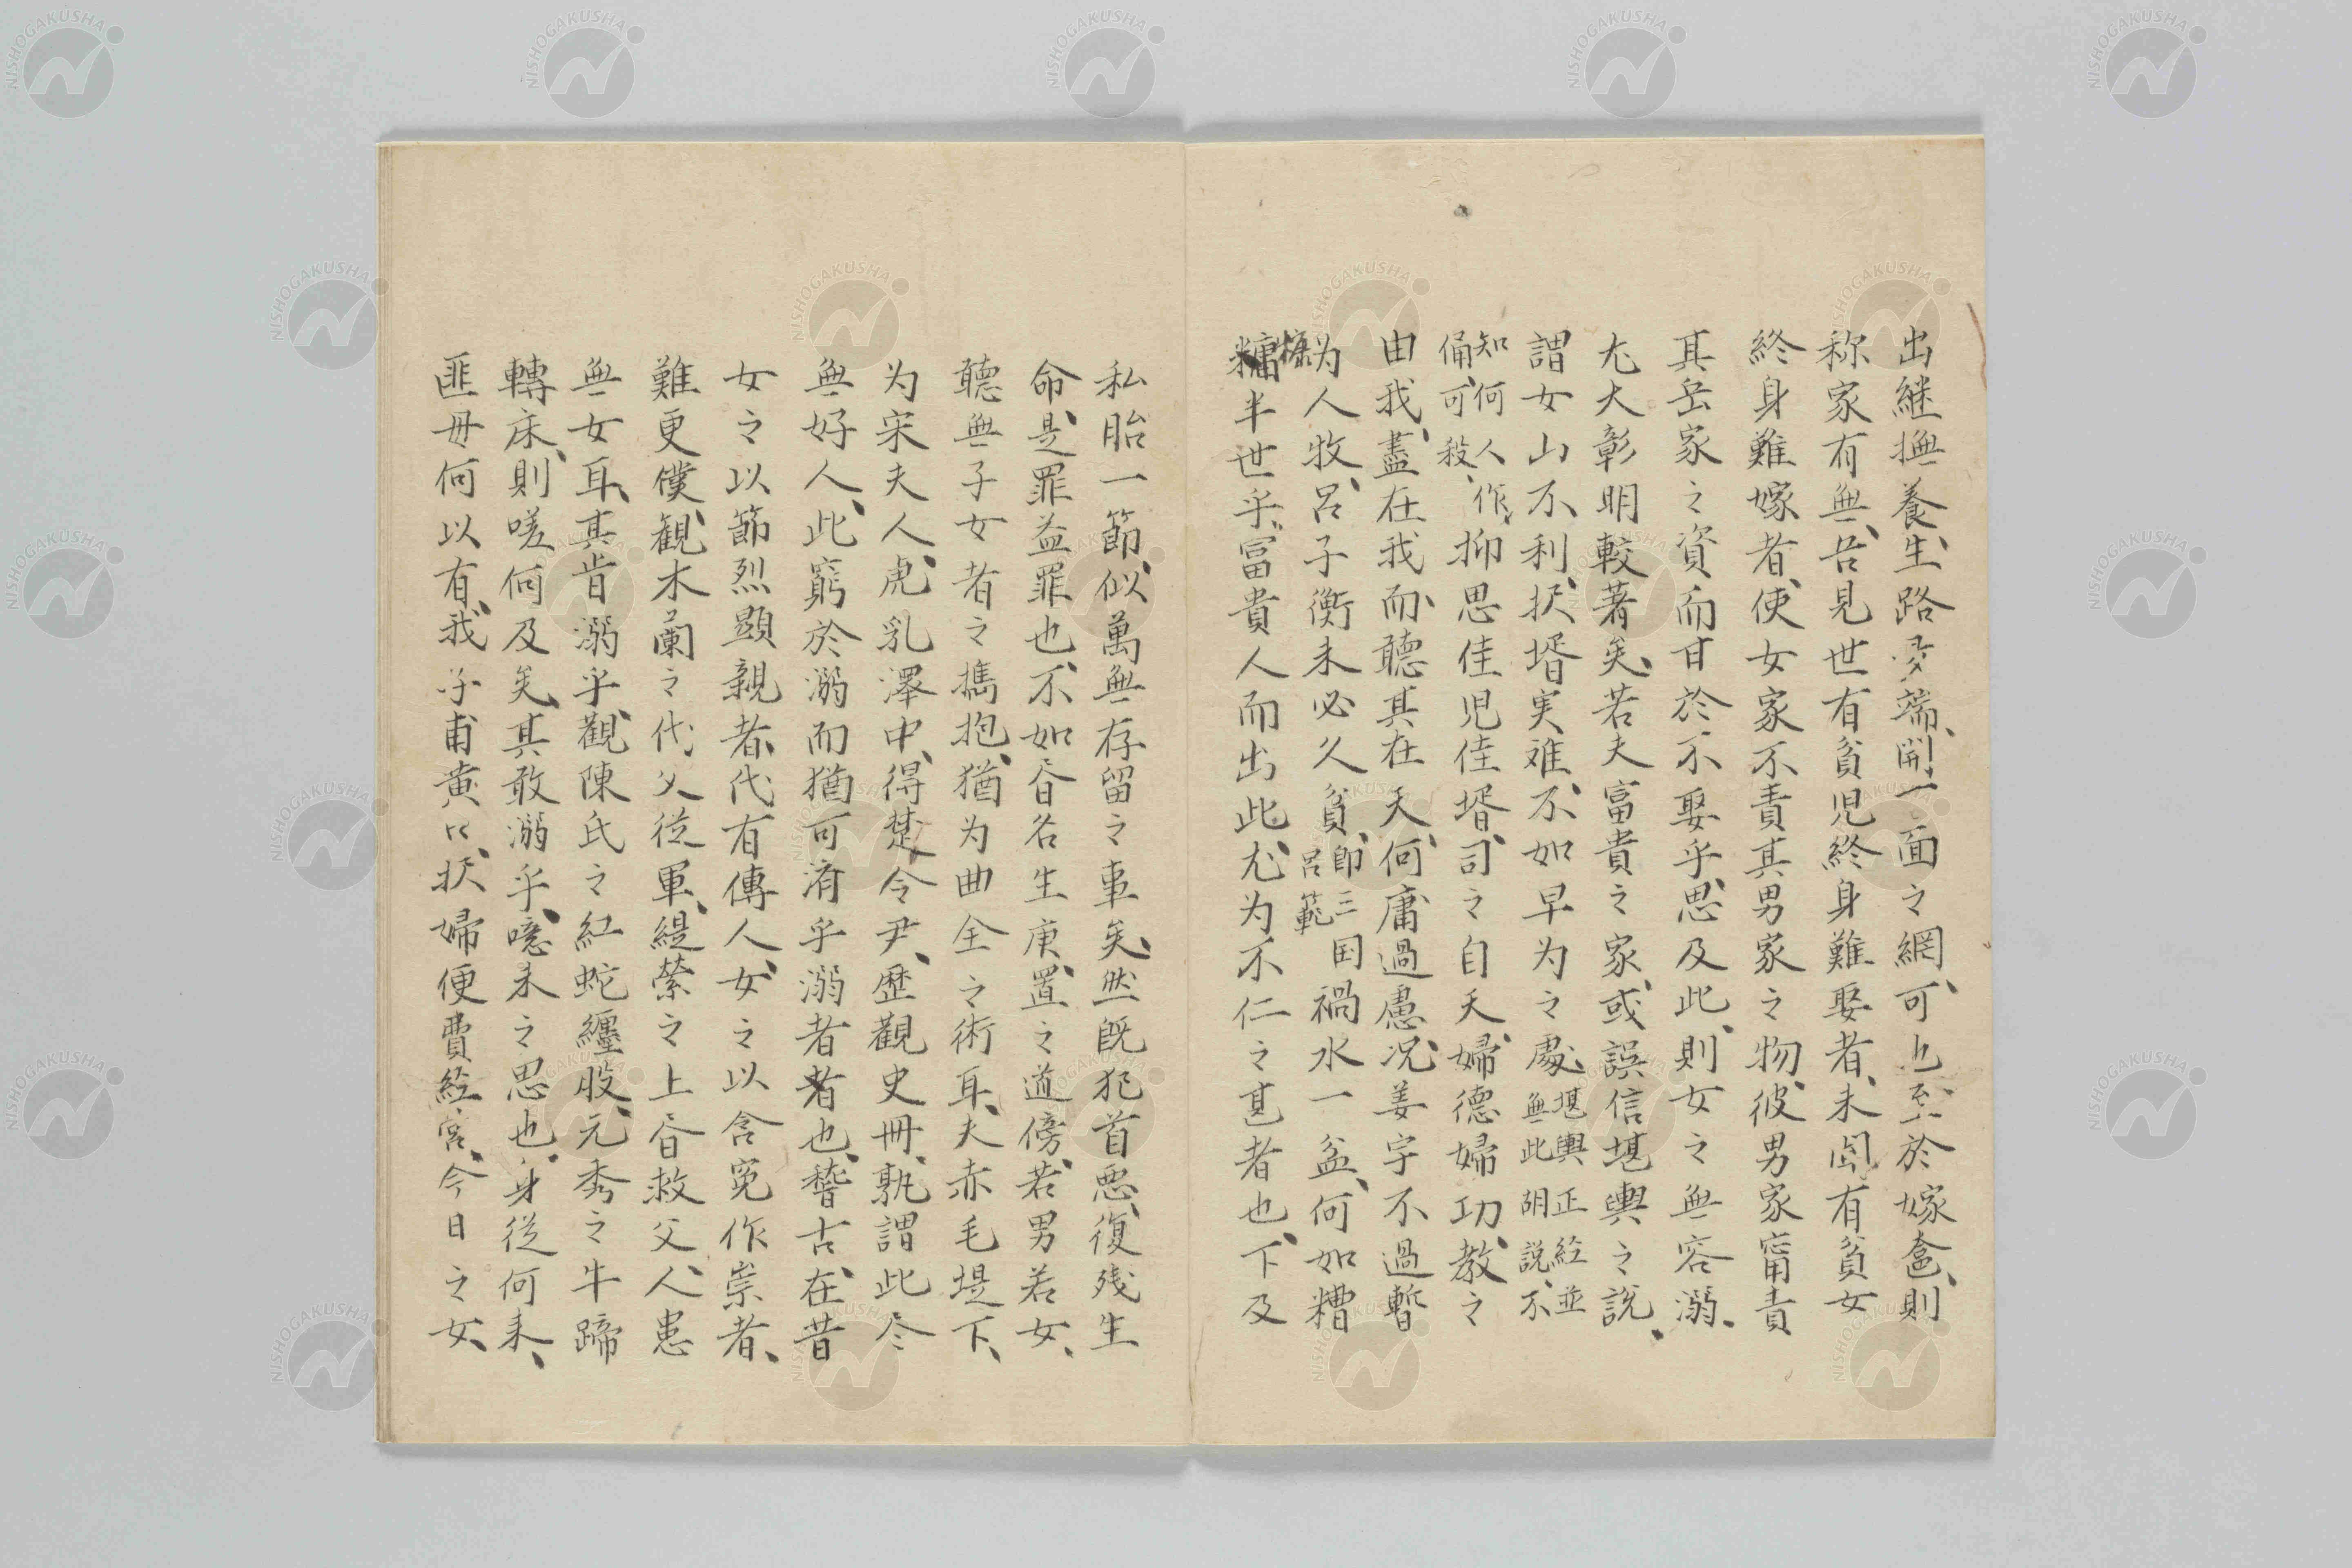 出継撫養、生路多端、開一面之網、可也至於嫁奩、則
称家有無、吾見世有貧児終身難娶者、未聞有貧女
終身難嫁者、使女家不責其男家之物、彼男家甯責
其岳家之資而甘於不娶乎、思及此、則女之無容溺、
尤大彰明較著矣、若夫富貴之家、或誤信堪輿之説、
謂女山不利、抚壻実难、不如早为之處、堪輿正経並無此胡説、不
知何人作俑、可殺、抑思佳児佳壻、司之自天、婦德婦功、教之
由我、盡在我而、聽其在天、何庸過慮、况姜字不過暫
为人牧、呂子衡未必久貧、即三国呂範禍水一盆、何如糟
糠半世乎、富貴人而出此、尤为不仁之甚者也、下及
私胎一節、似萬無存留之事矣、然既犯首悪、復残生
命、是罪益罪也、不如昏名生庚、置之道傍、若男若女、
聽無子女者之擕抱、猶为曲全之術耳、夫赤毛堤下、
为宋夫人、虎乳澤中、得楚令尹、歴觀史冊、孰謂此尽
無好人、此窮於溺而猶可濟乎溺者者也、稽古在昔
女之以節烈顯親者、代有傳人、女之以含冤作祟者、
難更僕、観木蘭之代父從軍、緹縈之上書救父、人患
無女耳、其肯溺乎、觀陳氏之紅蛇纏股、元秀之牛蹄
轉床、則嗟何及矣、其敢溺乎、噫未之思也、身從何来、
匪毋何以有我、子甫黄口、抚婦便費経宮、今日之女、